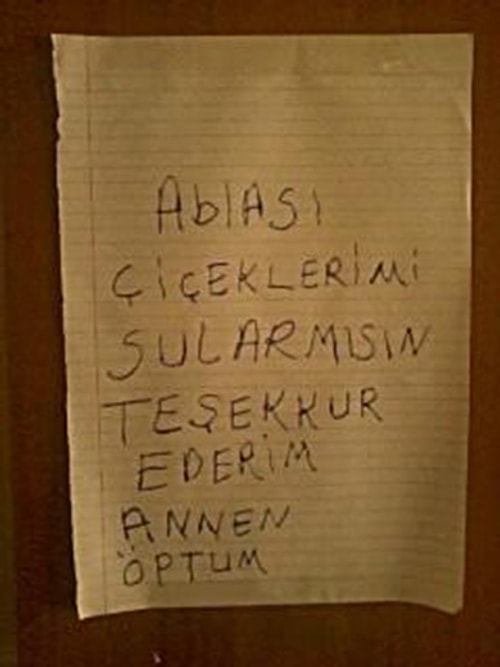 AblASI
ÇİÇEKLERİMİ
SULARMISIN
TEŞEKKUR
EDERİM
ANNEN
ÖPTUM